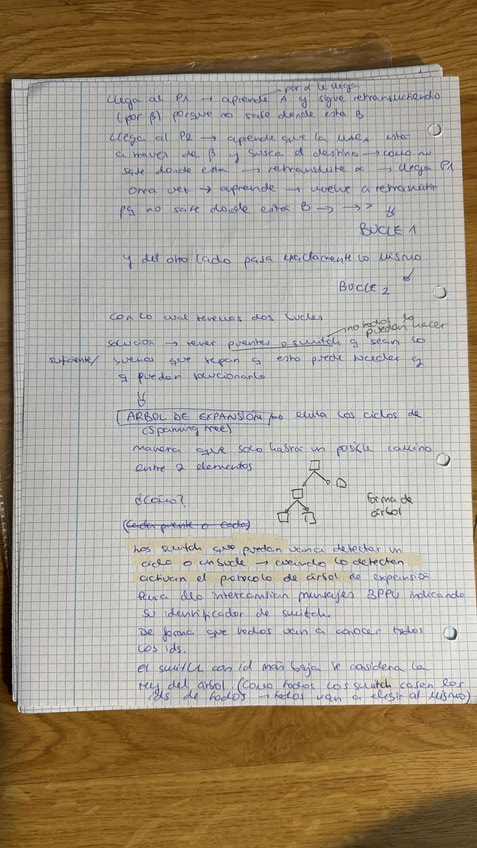 por α le llega
Llega al P1 → aprende A y sigue retransmitiendo
(por β) porque no sabe donde esta B
Llega al P2 → aprende que la esta
a traves de β y busca el destino → como no
sabe donde esta → retransmite α → llega P1
otra vez → aprende → vuelve a retransmitir
pq no sabe donde esta B → → >
BUCLE 1
Y del otro lado pasa exactamente lo mismo
BUCLE 2
Con lo cual tenemos dos bucles
no todos lo
pueden hacer
solucion → tener puentes o switch q sean lo
suficiente/ buenos que sepan q esto puede suceder y
q puedan solucionarlo
ARBOL DE EXPANSIÓN evita los ciclos de
(Spanning tree)
manera que solo habrá un posible camino
entre 2 elementos
¿Cómo?
forma de
árbol
(cada puente o cada)
Los switch que puedan van a detectar un
ciclo o un bucle → cuando lo detectan
activan el protocolo de árbol de expansión
Para ello intercambian mensajes BPDU indicando
su identificador de switch.
De forma que todos van a conocer todos
los ids.
El switch con id más baja se considera la
del árbol. (Como todos los switch saben los
ids de todos → todos van a elegir al mismo)